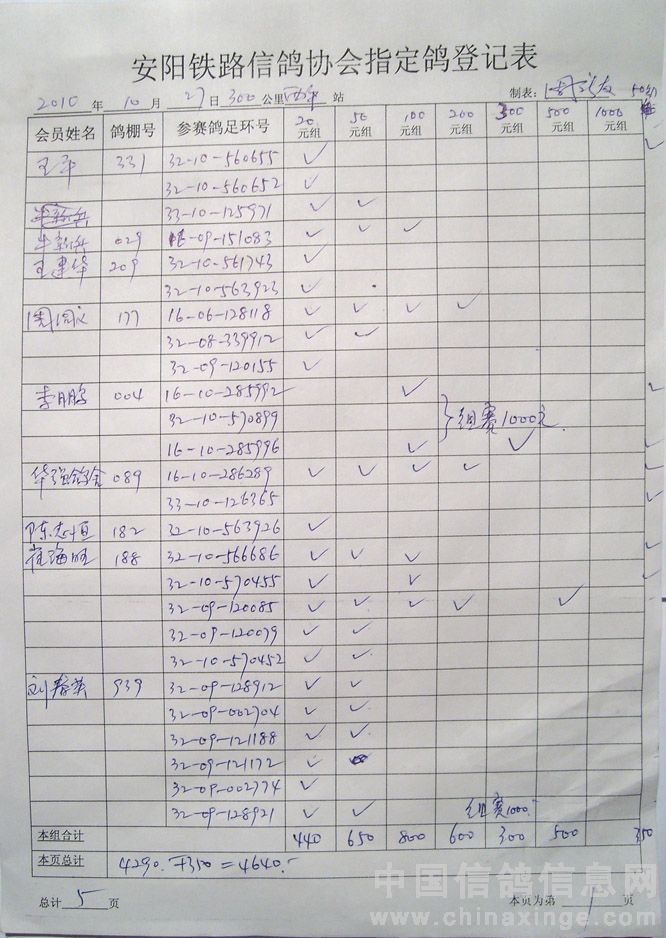 安阳铁路信鸽协会指定鸽登记表
2010 年 10 月 27 日 300 公里 站 制表:
会员姓名 鸽棚号 参赛鸽足环号 20元组 50元组 100元组 200元组 300元组 500元组 1000元组 50幼
王平 331 32-10-560655 ✓ ✓
32-10-560652 ✓
33-10-125971 ✓ ✓
牛新兵 029 16-09-151083 ✓ ✓ ✓
王建华 209 32-10-561743 ✓
32-10-563923 ✓
177 16-06-128118 ✓ ✓ ✓ ✓
32-08-339912 ✓ ✓
32-09-120155 ✓
李朋 004 16-10-285992 ✓ ✓
32-10-570899 组赛1000元
16-10-285996 ✓ ✓ ✓
华强鸽舍 089 16-10-286289 ✓ ✓ ✓ ✓ ✓
33-10-126365 ✓
陈志恒 182 32-10-563926 ✓
崔海旺 188 32-10-566686 ✓ ✓ ✓ ✓
32-10-570455 ✓ ✓ ✓
32-09-120085 ✓ ✓ ✓ ✓ ✓
32-09-120079 ✓ ✓
32-10-570452 ✓ ✓
刘春英 939 32-09-128912 ✓ ✓
32-09-002704 ✓ ✓
32-09-121188 ✓ ✓
32-09-121172 ✓
32-09-002774 ✓
32-09-128921 ✓ ✓ 组赛1000.
本组合计 440 650 800 600 300 500 350
本页总计 4290. +350 = 4640.-
总计 5 页 本页为第 1 页
中国信鸽信息网
www.chinaxinge.com